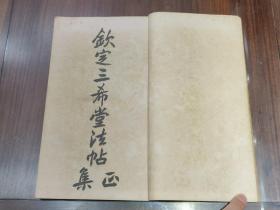 欽定三希堂法帖
正集